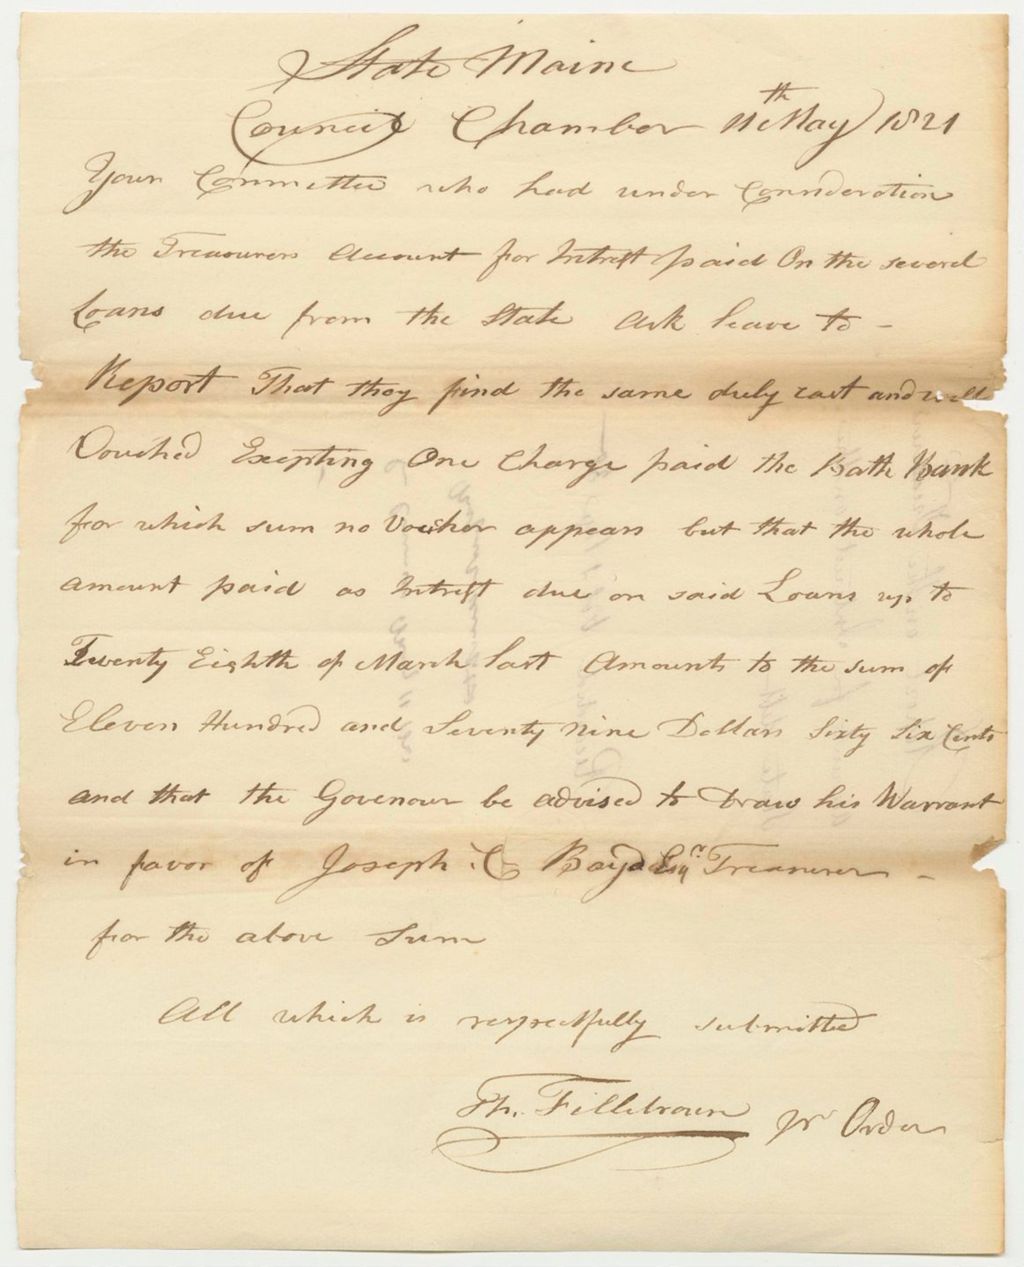 State Maine
Council Chamber 11th May 1821
Your Committee who had under Consideration
the Treasurers Account for Intrest paid On the several
Loans due from the State Ask leave to -
Report That they find the same duly cast and well
Vouched Excepting One Charge paid the Bath Bank
for which sum no Voucher appears but that the whole
amount paid as Intrest due on said Loans up to
Twenty Eighth of March last Amounts to the sum of
Eleven Hundred and Seventy Nine Dollars Sixty Six Cents
and that the Govenour be advised to Draw his Warrant
in favor of Joseph C Boyd Esqr Treasurer -
for the above Sum
All which is respectfully submitted
Th. Fillebrown pr Order